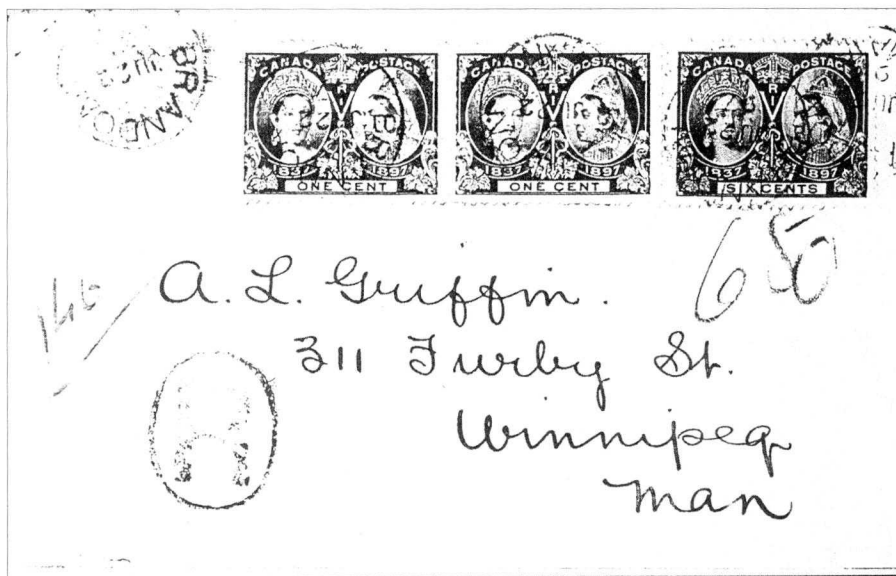 BRANDON
CANADA POSTAGE
V R I
1837 1897
ONE CENT
CANADA POSTAGE
V R I
1837 1897
ONE CENT
CANADA POSTAGE
V R I
1837 1897
SIX CENTS
650
146
A. L. Griffin.
311 Furby St.
Winnipeg
Man
R